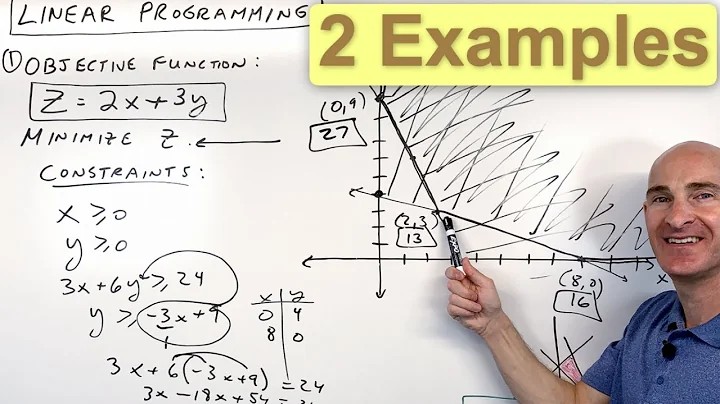 LINEAR PROGRAMMING
2 Examples
① OBJECTIVE FUNCTION:
Z = 2x+3y
MINIMIZE Z.
CONSTRAINTS:
x ≥ 0
y ≥ 0
3x+6y ≥ 24
y ≥ -3x+9
x y
0 4
8 0
3x+6(-3x+9) = 24
3x-18x+54=
(0,9)
27
(2,3)
13
(8,0)
16
x